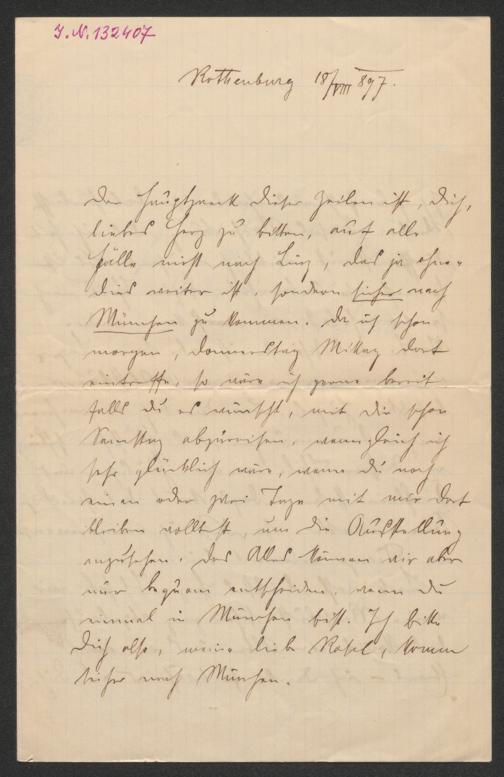 I. N. 132407
Rothenburg 18/VIII 897.
Der Hauptzweck dieser Zeilen ist, Dich,
liebes Herz zu bitten, auf alle
Fälle nicht nach Linz, das ja ohne-
dies weiter ist, sondern sicher nach
München zu kommen. Da ich schon
morgen, Donnerstag Mittag dort
eintreffe, so wäre ich gerne bereit
falls du es wünscht, mit dir schon
Samstag abzureisen, wenngleich ich
sehr glücklich wäre, wenn du noch
einen oder zwei Tage mit mir dort
bleiben wolltest, um die Ausstellung
anzusehen. Das Alles können wir aber
nur bequem entscheiden, wenn du
einmal in München bist. Ich bitte
Dich also, meine liebe Rosel, komm
sicher nach München.